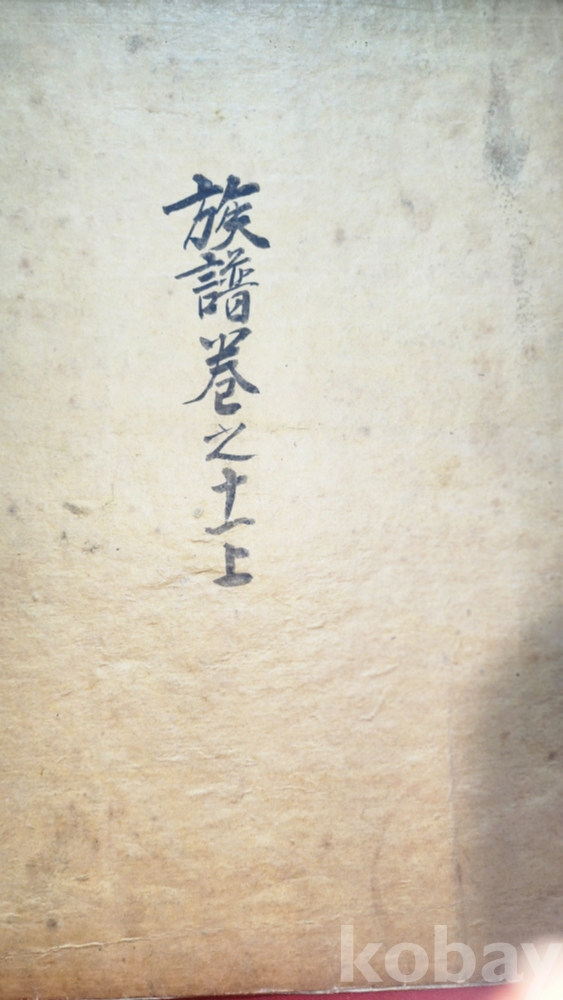 族譜卷之十一上
kobay